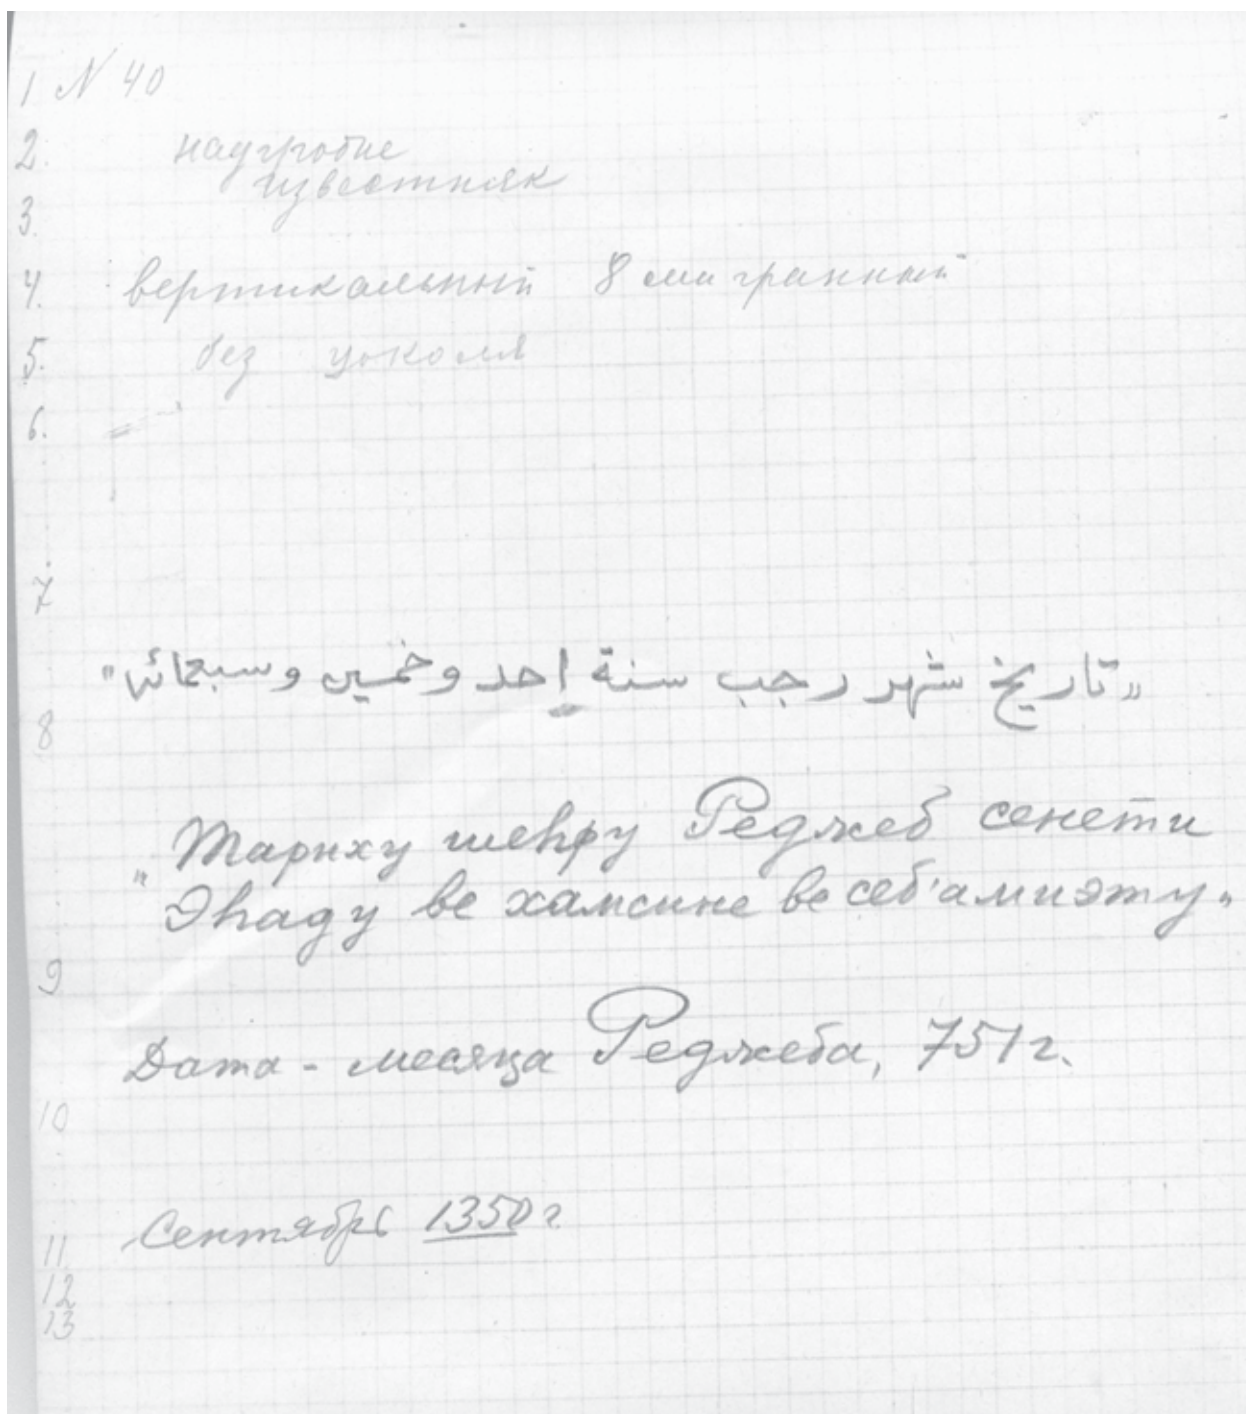 1 № 40
2. надгробие
известняк
3.
4. вертикальный 8 ми гранный
5. без цоколя
6. =
7
„تاريخ شهر رجب سنة إحد وخمسين وسبعمائه“
8
„Тариху шеһру Реджеб сенети
Эһаду ве хамсине ве себ'амиэту“
9
Дата - месяца Реджеба, 751 г.
10
Сентябрь 1350 г.
11
12
13